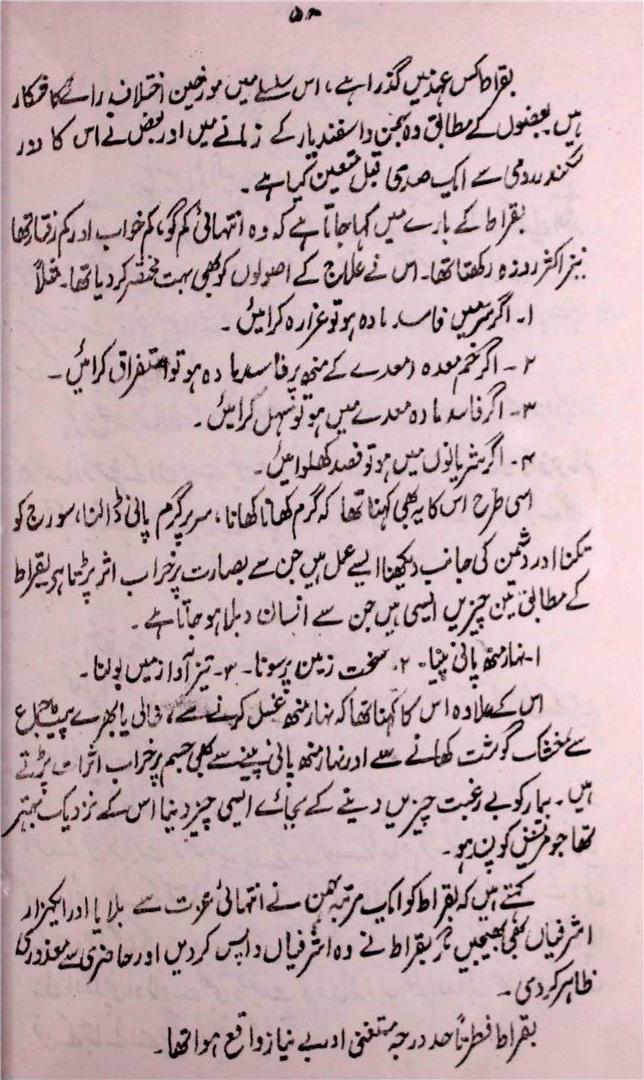 ۵۴
بقراط کس عہد میں گذرا ہے، اس سلسلے میں مورخین اختلاف رائے کا شکار
ہیں بعضوں کے مطابق وہ بہمن و اسفند یار کے زمانے میں اور بعض نے اس کا دور
سکندر رومی سے ایک صدی قبل متعین کیا ہے۔
بقراط کے بارے میں کہا جاتا ہے کہ وہ انتہائی کم گو، کم خواب اور کم رفتار تھا
نیز اکثر روزہ رکھتا تھا۔ اس نے علاج کے اصولوں کو بھی بہت مختصر کر دیا تھا۔ مثلاً
۱۔ اگر سر میں فاسد مادہ ہو تو غرارہ کرائیں۔
۲۔ اگر فم معدہ (معدے کے منھ پر فاسد مادہ ہو تو استفراق کرائیں۔
۳۔ اگر فاسد مادہ معدے میں ہو تو مسہل کرائیں۔
۴۔ اگر شریانوں میں ہو تو فصد کھلوائیں۔
اسی طرح اس کا یہ بھی کہنا تھا کہ گرم کھانا کھانا، سر پر گرم پانی ڈالنا، سورج کو
تکنا اور دشمن کی جانب دیکھنا ایسے عمل ہیں جن سے بصارت پر خراب اثر پڑتا ہے بقراط
کے مطابق تین چیزیں ایسی ہیں جن سے انسان دبلا ہو جاتا ہے۔
۱۔ نہار منھ پانی پینا۔ ۲۔ سخت زمین پر سونا۔ ۳۔ تیز آواز میں بولنا۔
اس کے علاوہ اس کا کہنا تھا کہ نہار منھ غسل کرنے سے، خالی یا بھرے پیٹ جماع
سے خشک گوشت کھانے سے اور نہار منھ پانی پینے سے بھی جسم پر خراب اثرات پڑتے
ہیں۔ بیمار کو بے رغبت چیزیں دینے کے بجائے ایسی چیز دینا اس کے نزدیک بہتر
تھا جو مریض کو پسند ہو۔
کہتے ہیں کہ بقراط کو ایک مرتبہ بہمن نے انتہائی عزت سے بلایا اور ایکہزار
اشرفیاں بھی بھیجیں مگر بقراط نے وہ اشرفیاں واپس کر دیں اور حاضری سے معذوری
ظاہر کر دی۔
بقراط فطرتاً حد درجہ مستغنی اور بے نیاز واقع ہوا تھا۔